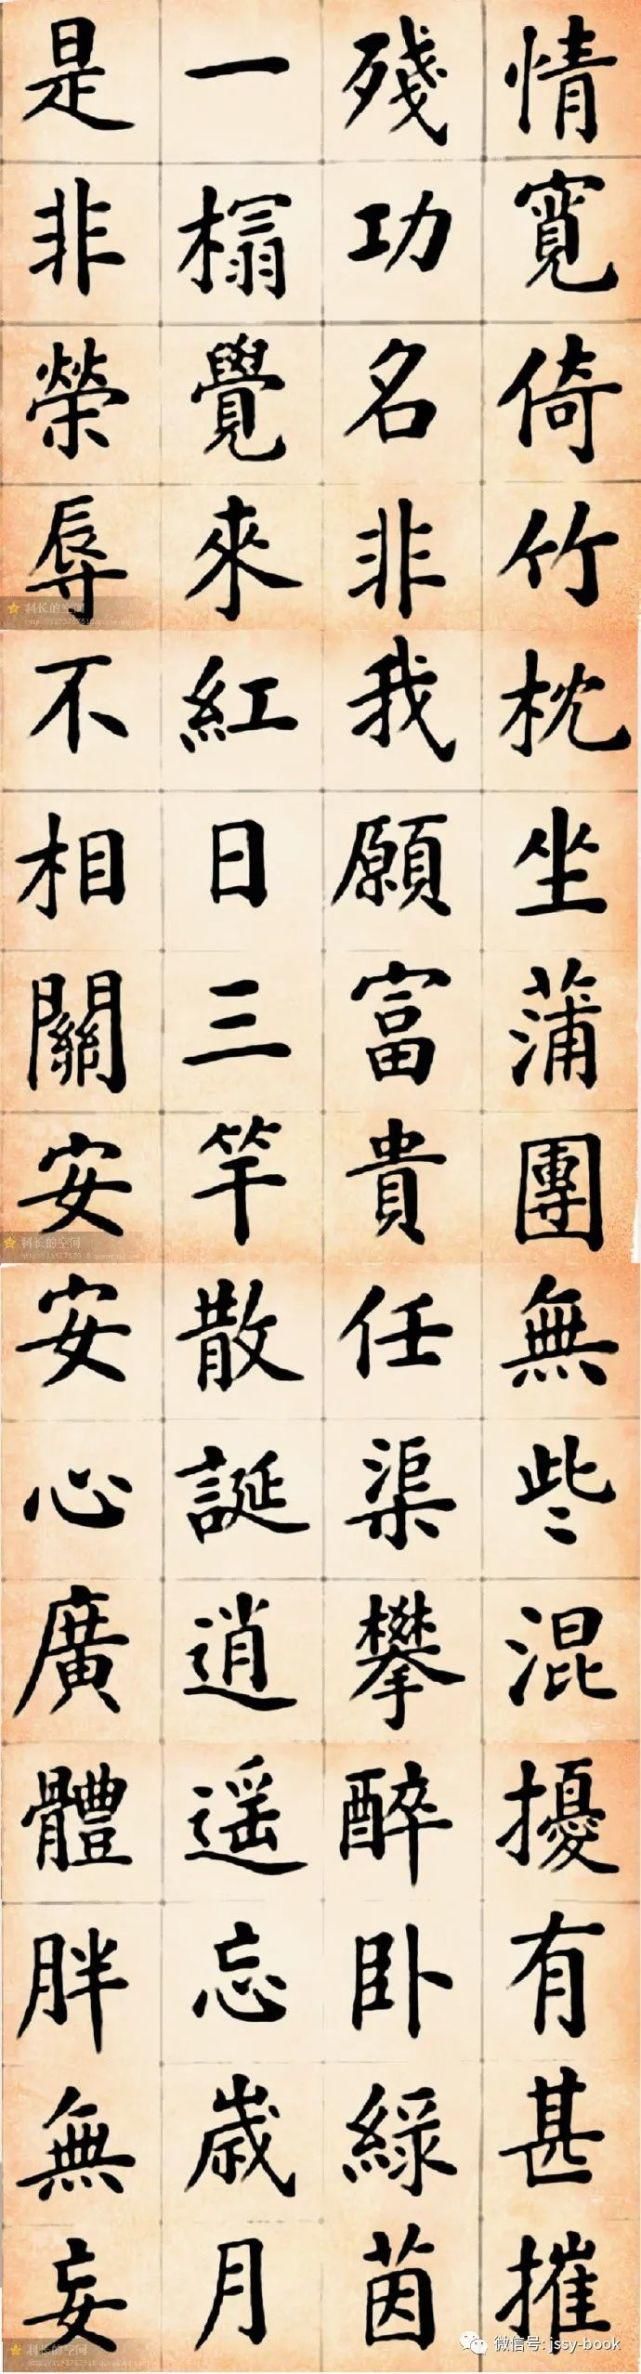 情寬倚竹枕坐蒲團無些混擾有甚摧
殘功名非我願富貴任渠攀醉卧綠茵
一榻覺來紅日三竿散誕逍遥忘歲月
是非榮辱不相關安安心廣體胖無妄
科长的空间
科长的空间
科长的空间
微信号: jssy-book